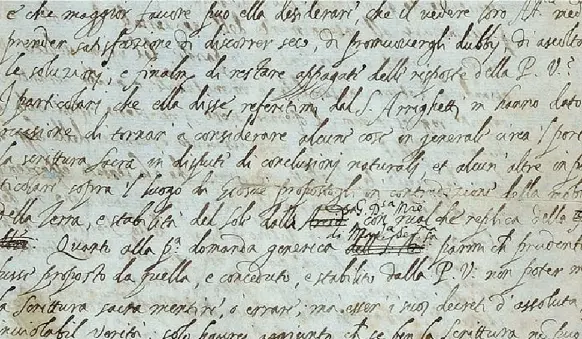 e che maggior favore può ella desiderare che il vedere loro
prender satisfazione di discorrer seco, di promuovergli dubbi, di ascoltar
le soluzioni, e finalm. di restare appagate delle risposte della P. V.
I particolari che ella disse, referitimi dal S. Arrighetti, m hanno dato
occasione di tornar a considerare alcune cose in generale circa 'l
la scrittura sacra in dispute di conclusioni naturali, et alcun'altre in
ticolare sopra 'l luogo di Giosuè propostogli in contradizione della
della Terra, e stabilità del sole dalla con qualche replica della
Quanto alla p.ª domanda generica parmi ch prudentiss
fusse proposto da quella, e conceduto, e stabilito dalla P. V. non poter m
la scrittura sacra mentire, o errare; ma esser i suoi decreti d'assoluta
inviolabil verità. solo haurei aggiunto ch se ben la scrittura no può